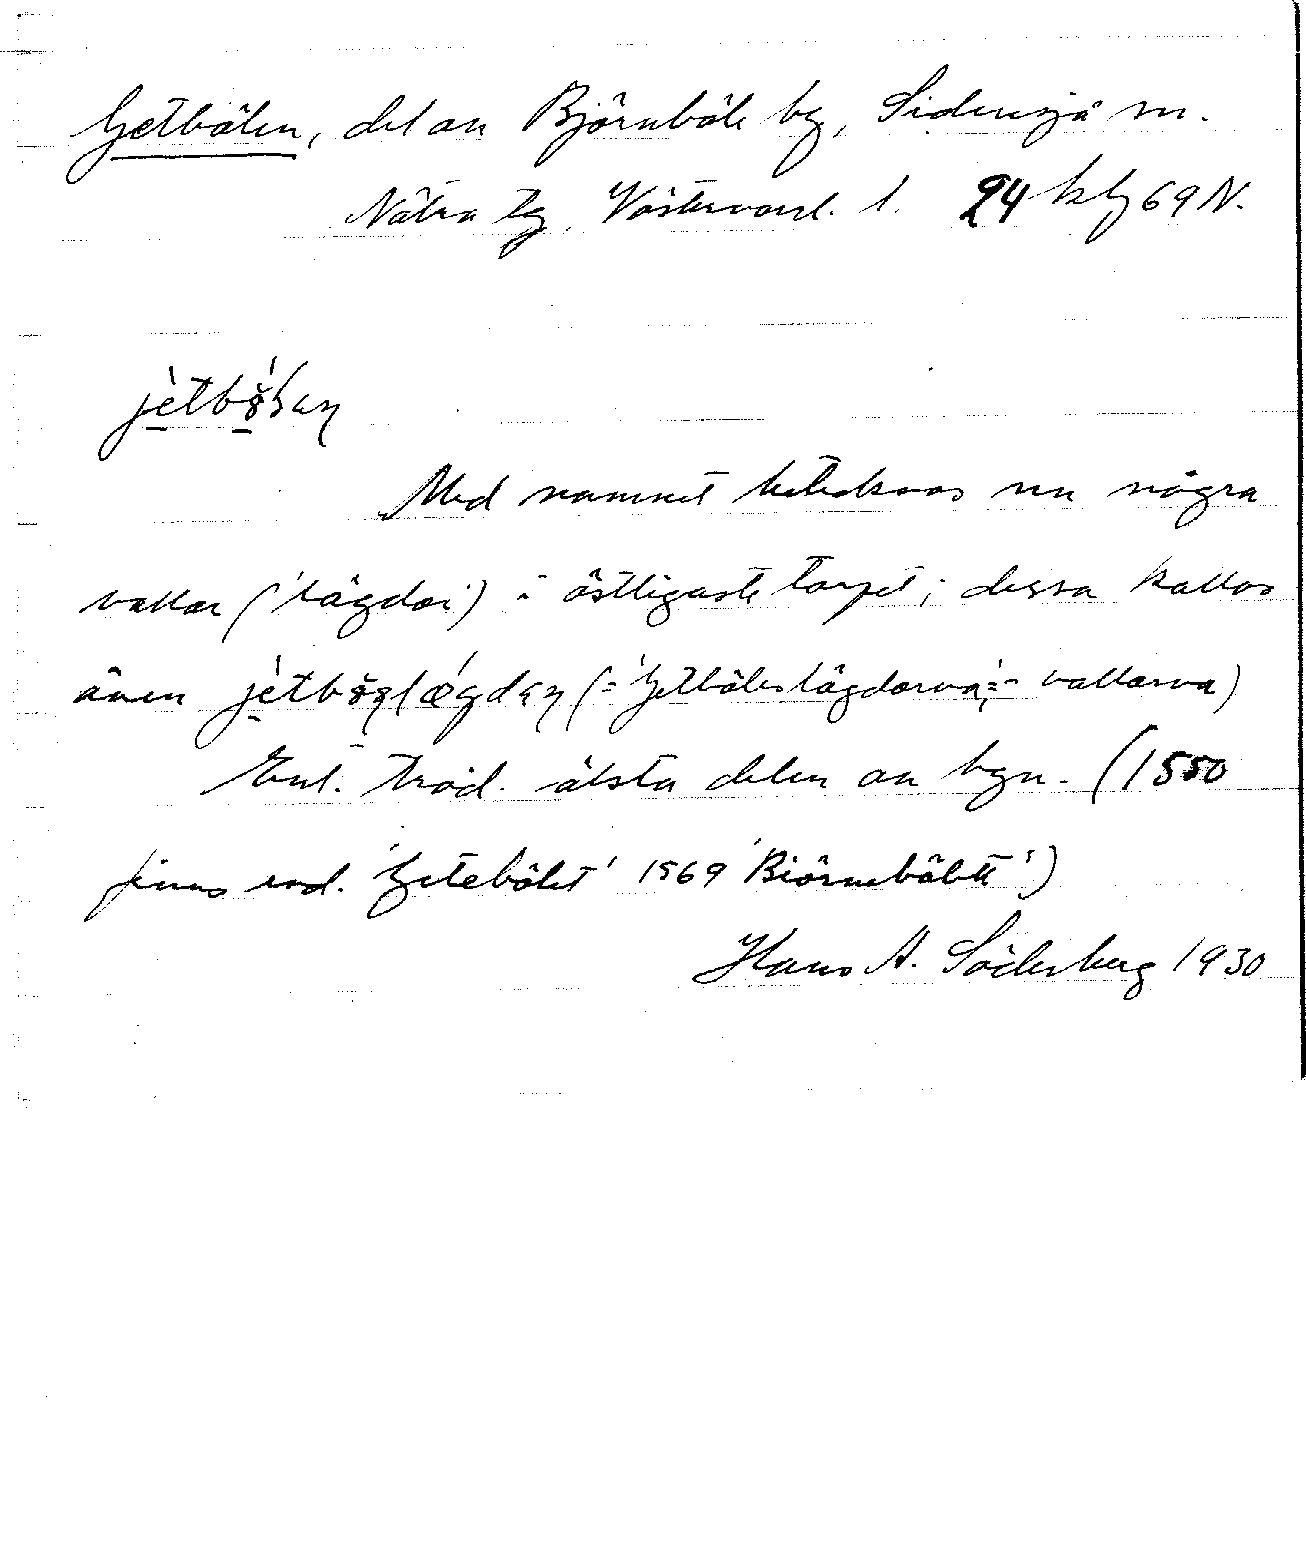 Getbölen, del av Björnböle by, Sidensjö sn.
Nätra tg, Västernorrl. l. 24 kbg 69 N.
jètbø̀lɛn
Med namnet betecknas nu några
vallar ('lägdor') i östligaste torpet; dessa kallas
även (= 'Getböleslägdorna', = - vallarna)
Enl. trad. älsta delen av byn. (1550
finns end. 'Getebölet' 1569 'Biörnebölett')
Hans A. Söderberg 1930